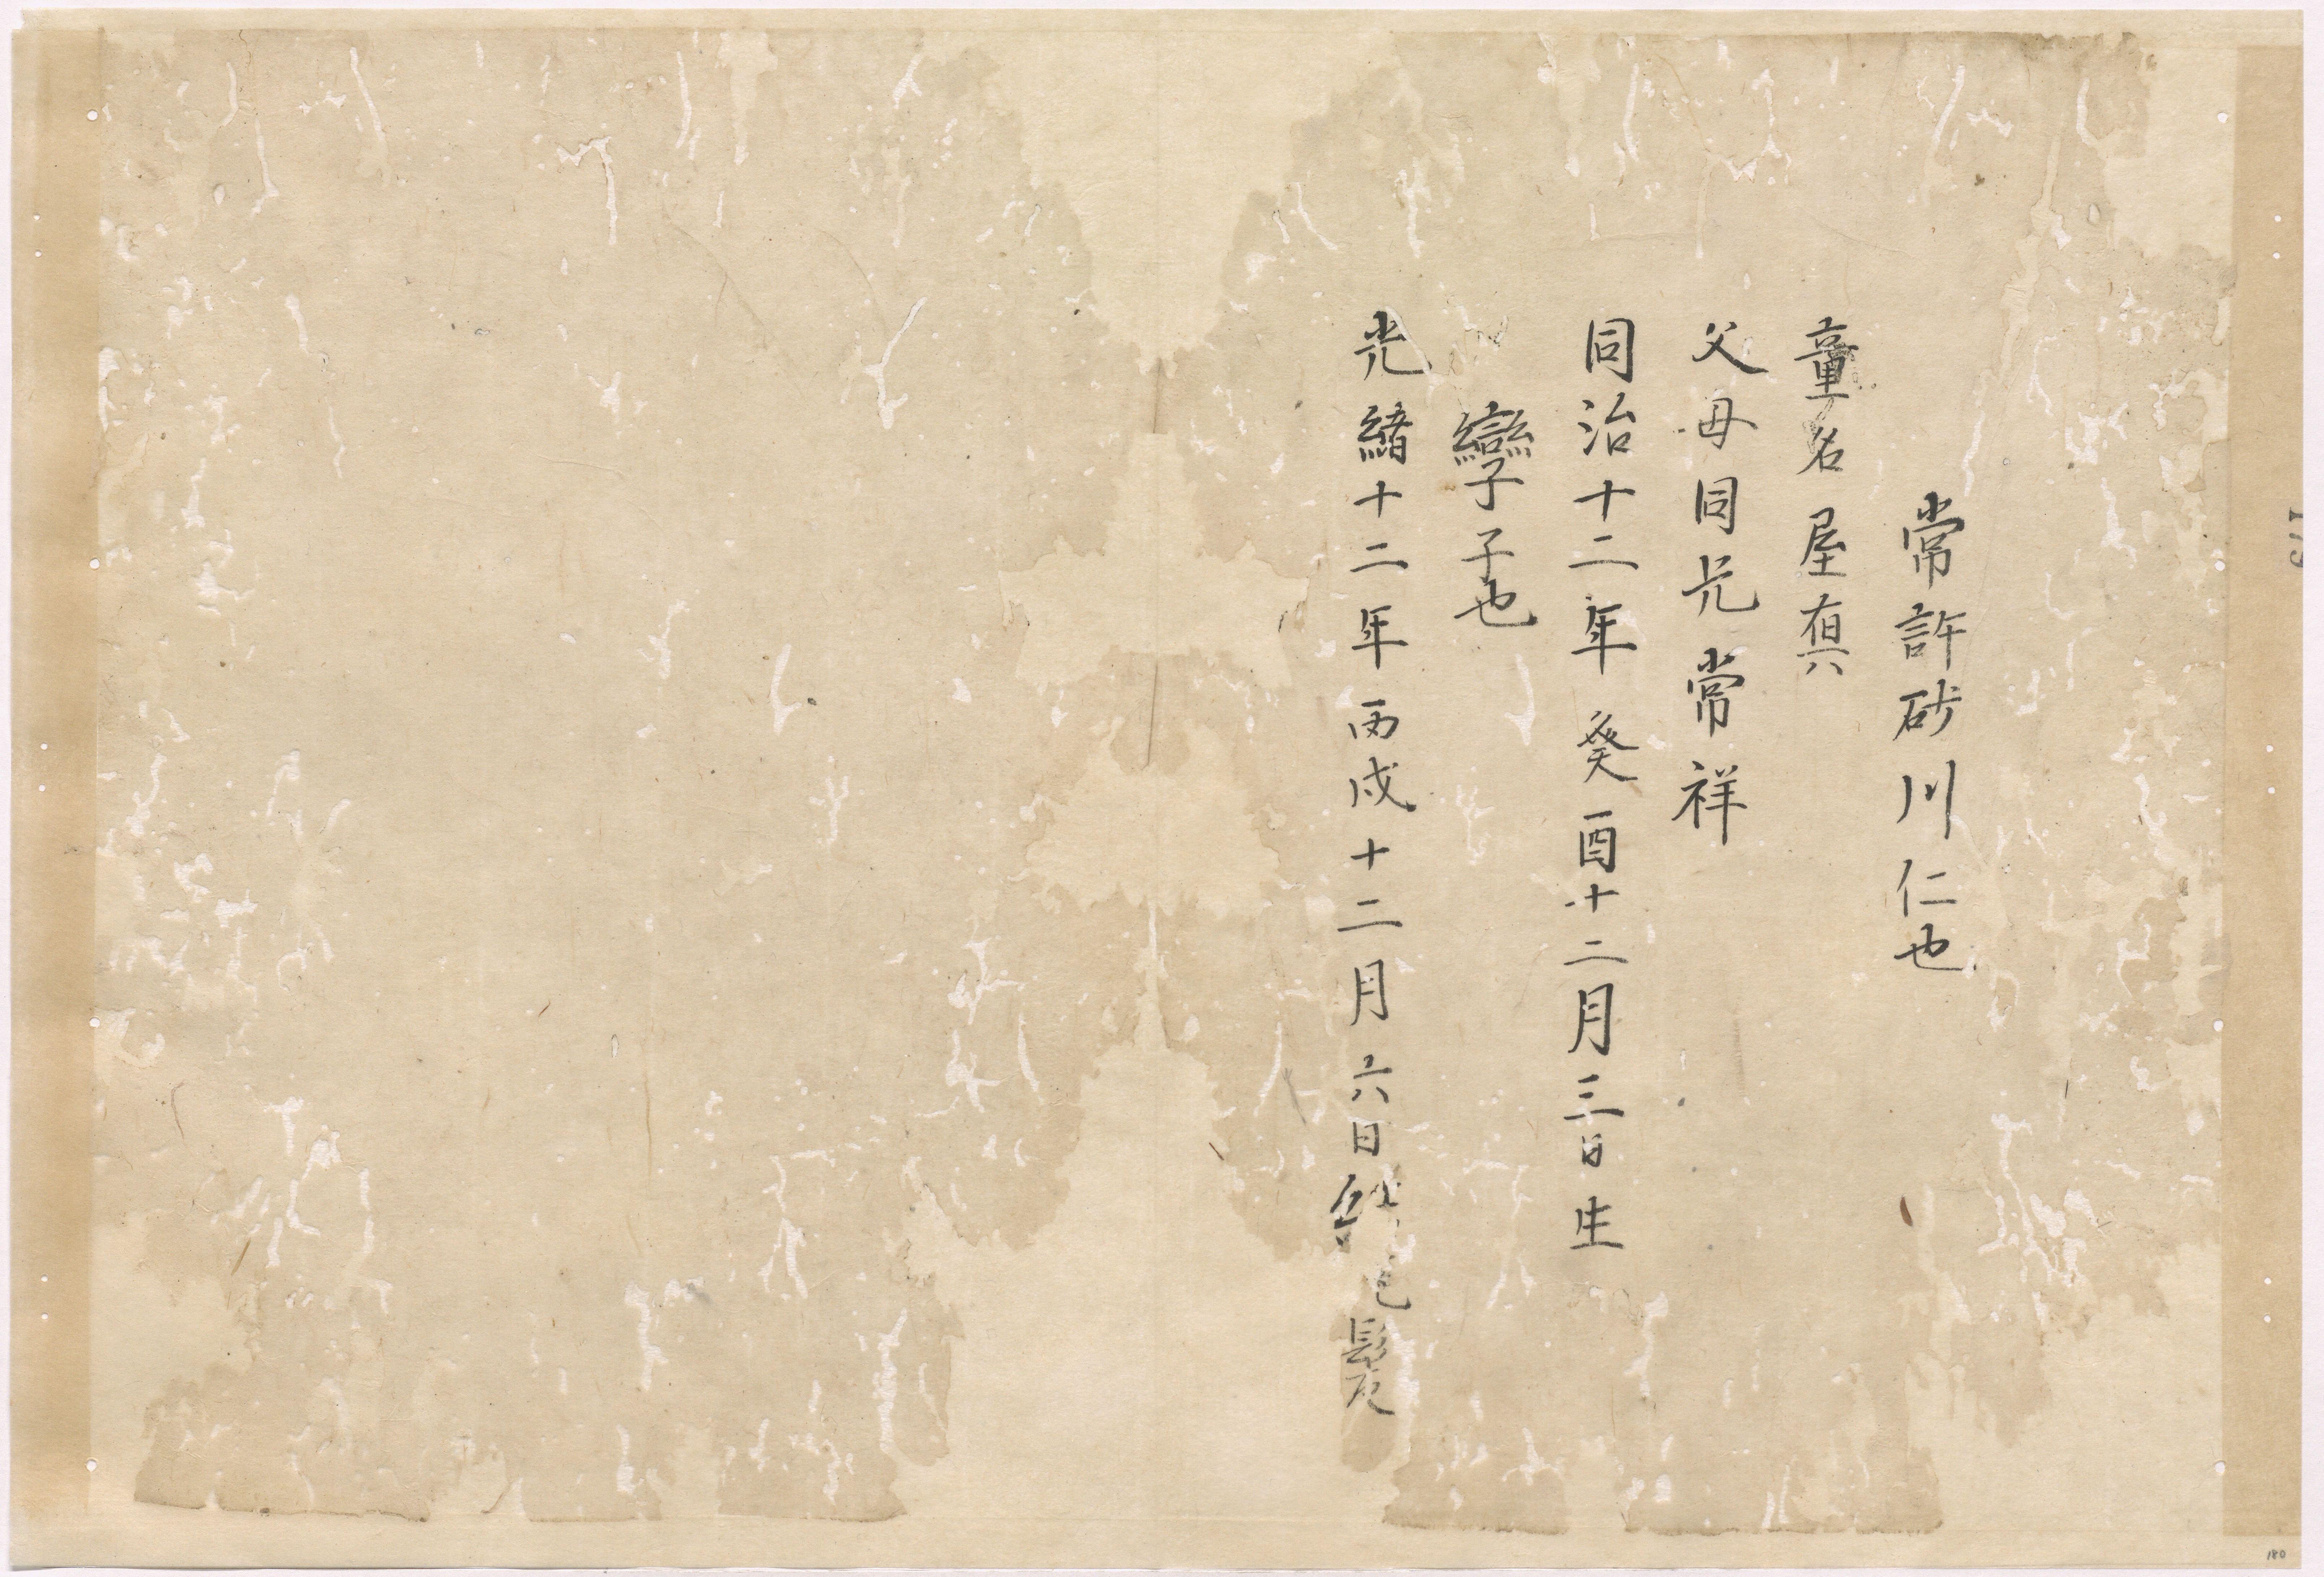 常許砂川仁也
童名屋真
父母同兄常祥
同治十二年癸酉十二月三日生
孿子子也
光緒十二年丙戌十二月六日結髮
180